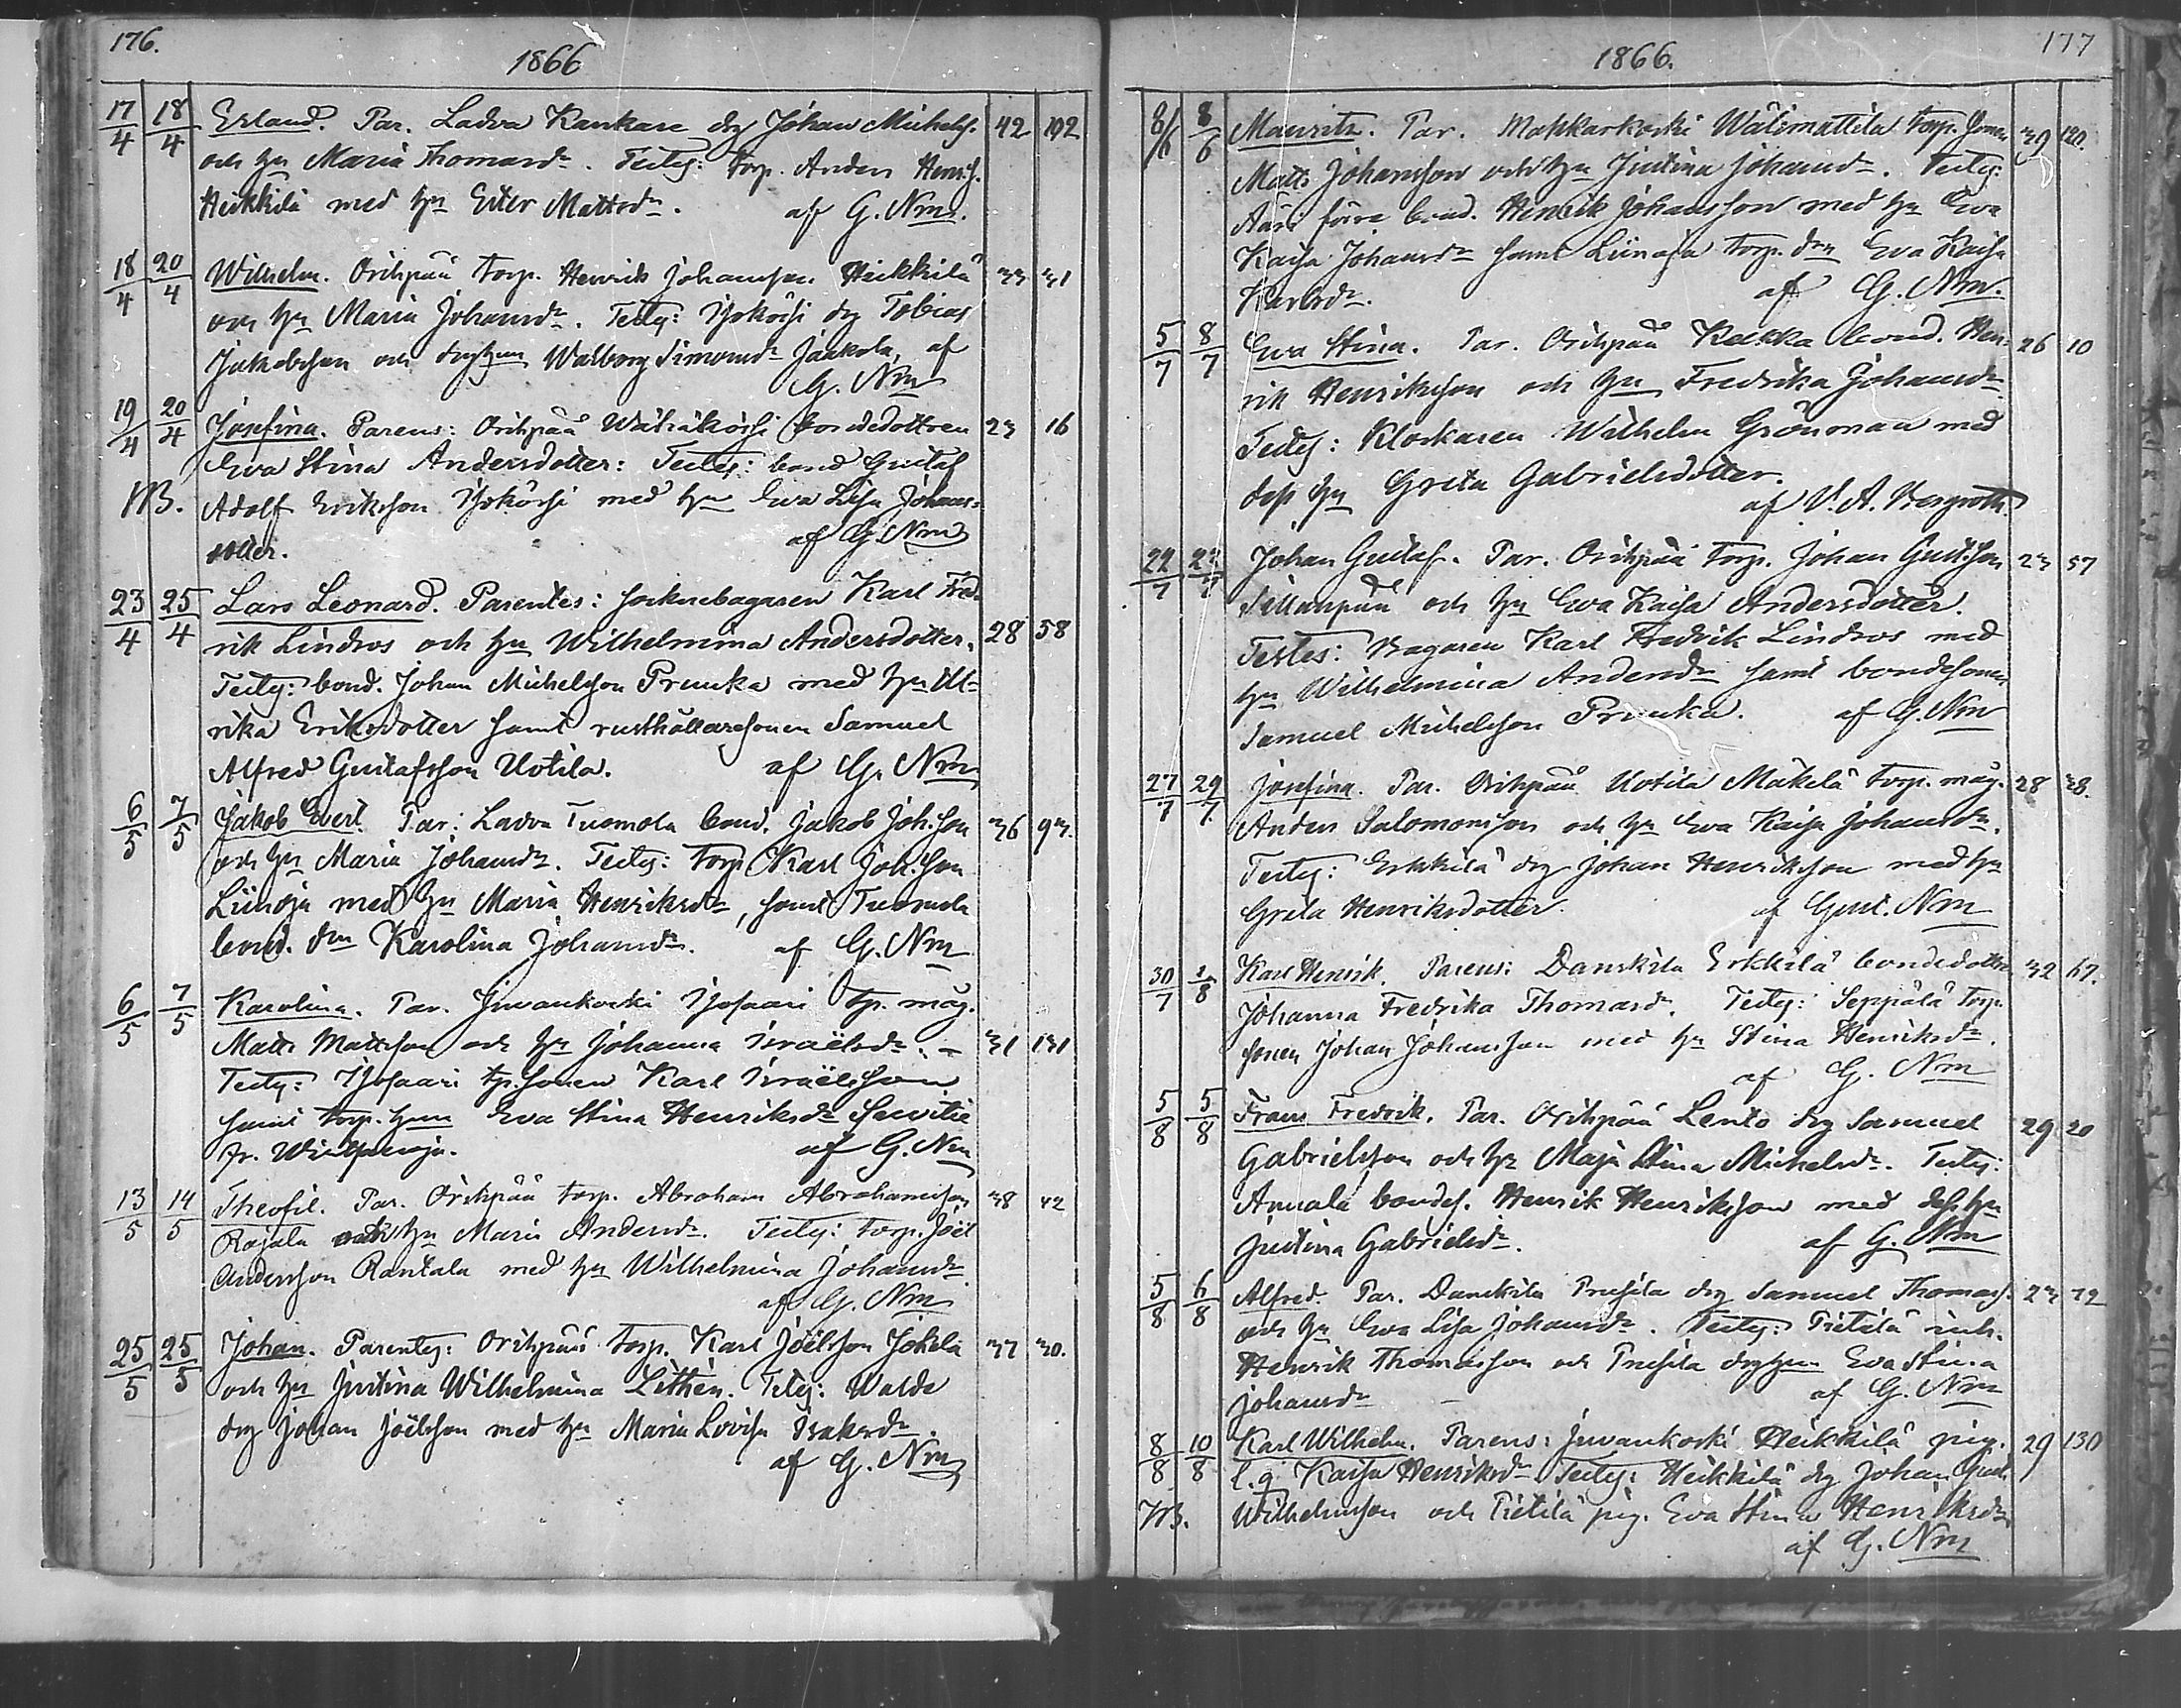 176.
1866
17/4 18/4 Erland. Par. Ladva Kankare drg Johan Michels. 42 192
och hu Maria Thomasdr. Testes: torp. Anders Henrs.
Heikkilä med hu Ester Mattsdr. af G. Nm.
18/4 20/4 Wilhelm. Orihpää torp. Henrik Johansson Heikkilä 33 31
och hu Maria Johansdr. Testes: Isokörsi drg Tobias
Jakobsson och drghun Walborg Simonsdr Jaakola, af
G. Nm
19/4 20/4 Josefina. Parens: Orihpää Wähäkörsi bondedottren 23 16
Eva Stina Andersdotter: Testes: bond Gustaf
NB. Adolf Eriksson Isokörsi med hu Eva Lisa Johans-
dotter. af G. Nm
23/4 25/4 Lars Leonard. Parentes: socknebagaren Karl Fred-
rik Lindros och hu Wilhelmina Andersdotter. 28 58
Testes: bond. Johan Michelsson Prunka med hu Ul-
rika Eriksdotter samt rusthållaresonen Samuel
Alfred Gustafsson Uotila. af G. Nm
6/5 7/5 Jakob Evert. Par: Ladva Tuomola bond. Jakob Joh.son 36 93.
och hu Maria Johansdr. Testes: torp. Karl Joh.son
Liinoja med hu Maria Henriksdr, samt Tuomola
bond. drn Karolina Johansdr. af G. Nm
6/5 7/5 Karolina. Par. Juvankoski Isosaari tp. måg.
Matts Mattsson och hu Johanna Israëlsdr. 31 131
Testes: Isosaari tp. sonen Karl Israëlsson
samt torp. hun Eva Stina Henriksdr
fr. af G. Nm
13/5 14/5 Theofil. Par. Orihpää torp. Abraham Abrahamsson 38 42
Rajala och hu Maria Andersdr. Testes: torp. Joël
Andersson Rantala med hu Wilhelmina Johansdr.
af G. Nm
25/5 25/5 Johan. Parentes: Orihpää torp. Karl Joëlsson Jokela 37 30.
och hu Justina Wilhelmina Lithén. Testes: Uolde
drg Johan Joëlsson med hu Maria Lovisa Isaksdr.
af G. Nm
177
1866.
8/6 8/6 Mauritz. Par. Makkarkoski Wälimattila torp. 39 120.
Matts Johansson och hu Justina Johansdr. Testes:
förre bond. Henrik Johansson med hu Eva
Kaisa Johansdr samt Liinoja torp. drn Eva Kaisa
Karlsdr. af G. Nm.
5/7 8/7 Eva Stina. Par. Orihpää Keikka bond. Hen- 26 10
rik Henriksson och hu Fredrika Johansdr
Testes: Klockaren Wilhelm Grönman med
dess hu Greta Gabrielsdotter.
af V. A. Bergroth.
22/7 22/7 Johan Gustaf. Par. Orihpää torp. Johan Gust.son 23 57
Sillanpää och hu Eva Kaisa Andersdotter.
Testes: Bagaren Karl Fredrik Lindros med
hu Wilhelmina Andersdr samt bondesonen
Samuel Michelsson Prunka. af G. Nm
27/7 29/7 Josefina. Par. Orihpää Uotila Mäkelä torp. måg. 28 28.
Anders Salomonsson och hu Eva Kaisa Johansdr.
Testes: Erkkilä drg Johan Henriksson med hu
Greta Henriksdotter. af Gust. Nm
30/7 1/8 Karl Henrik. Parens: Danskila Erkkilä bondedottr. 32 67.
Johanna Fredrika Thomasdr. Testes: Seppälä torp.
sonen Johan Johansson med hu Stina Henriksdr.
af G. Nm
5/8 5/8 Frans Fredrik. Par. Orihpää Lento drg Samuel 29 20
Gabrielsson och hu Maja Stina Michelsdr. Testes:
Annala bondes. Henrik Henriksson med dess hu
Justina Gabrielsdr. af G. Nm
5/8 6/8 Alfred. Par. Danskila Prusila drg Samuel Thomass. 23 72
och hu Eva Lisa Johansdr. Testes: Pietilä inh.
Henrik Thomasson och Prusila drghun Eva Stina
Johansdr – af G. Nm
8/8 10/8 Karl Wilhelm. Parens: Juvankoski Heikkilä pig. 29 130
l. q Kaisa Henriksdr. Testes: Heikkilä drg Johan Gust.
NB. Wilhelmsson och Pietilä pig. Eva Stina Henriksdr.
af G. Nm